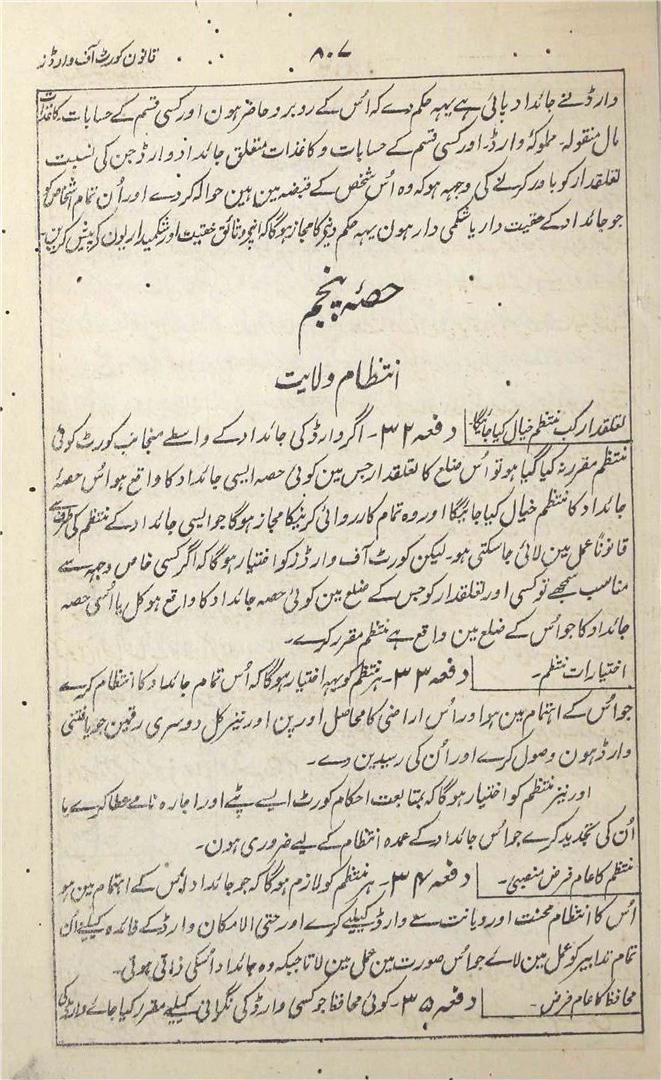 قانون کورٹ آف وارڈز
۸۰۷
وارڈ نے جائداد پائی ہے یہہ حکم دے کہ اُس کے روبرو حاضر ہون اور کسی قسم کے حسابات کاغذات
مال منقولہ مملوکۂ وارڈ۔ اور کسی قسم کے حسابات و کاغذات متعلق جائداد وارڈ جن کی نسبت
تعلقدار کو باور کرنے کی وجہہ ہو کہ وہ اُس شخص کے قبضہ مین ہین حوالہ کر دے اور اُن تمام اشخاص کو
جو جائداد کے حقیت دار یا شکمی دار ہون یہہ حکم دینے کا مجاز ہوگا کہ اپنے وثائق حقیت اور شکمیداریون کو پیش کرین۔
حصۂ پنجم
انتظام ولایت
تعلقدار کب منتظم خیال کیا جائیگا۔ دفعہ ۳۲۔ اگر وارڈ کی جائداد کے واسطے منجانب کورٹ کوئی
منتظم مقرر نہ کیا گیا ہو تو اُس ضلع کا تعلقدار جس مین کوئی حصہ ایسی جائداد کا واقع ہو اُس حصۂ
جائداد کا منتظم خیال کیا جائیگا اور وہ تمام کارروائی کرنیکا مجاز ہوگا جو ایسی جائداد کے منتظم کی طرف سے
قانوناً عمل مین لائی جاسکتی ہو۔ لیکن کورٹ آف وارڈز کو اختیار ہوگا کہ اگر کسی خاص وجہہ سے
مناسب سمجھے تو کسی اور تعلقدار کو جس کے ضلع مین کوئی حصہ جائداد کا واقع ہو کل یا اُسی حصہ
جائداد کا جو اُس کے ضلع مین واقع ہے منتظم مقرر کرے۔
اختیارات منتظم۔ دفعہ ۳۳۔ ہر منتظم کو یہہ اختیار ہوگا کہ اُس تمام جائداد کا انتظام کرے
جو اُس کے اہتمام مین ہو اور اُس اراضی کا محاصل اور پن اور نیز کل دوسری رقمین جو یافتنی
وارڈ ہون وصول کرے اور اُن کی رسیدین دے۔
اور نیز منتظم کو اختیار ہوگا کہ بمتابعت احکام کورٹ ایسے پٹے اور اجارہ نامے عطا کرے یا
اُن کی تجدید کرے جو اُس جائداد کے عمدہ انتظام کے لیے ضروری ہون۔
منتظم کا عام فرض منصبی۔ دفعہ ۳۴۔ ہر منتظم کو لازم ہوگا کہ جو جائداد اُس کے اہتمام مین ہو
اُس کا انتظام محنت اور دیانت سے وارڈ کیلئے کرے اور حتی الامکان وارڈ کے فائدہ کیلئے اُن
تمام تدابیر کو عمل مین لائے جو اُس صورت مین عمل مین لاتا جبکہ وہ جائداد اُسکی ذاتی ہوتی۔
محافظ کا عام فرض۔ دفعہ ۳۵۔ کوئی محافظ جو کسی وارڈ کی نگرانی کیلئے مقرر کیا جائے وارڈ کی